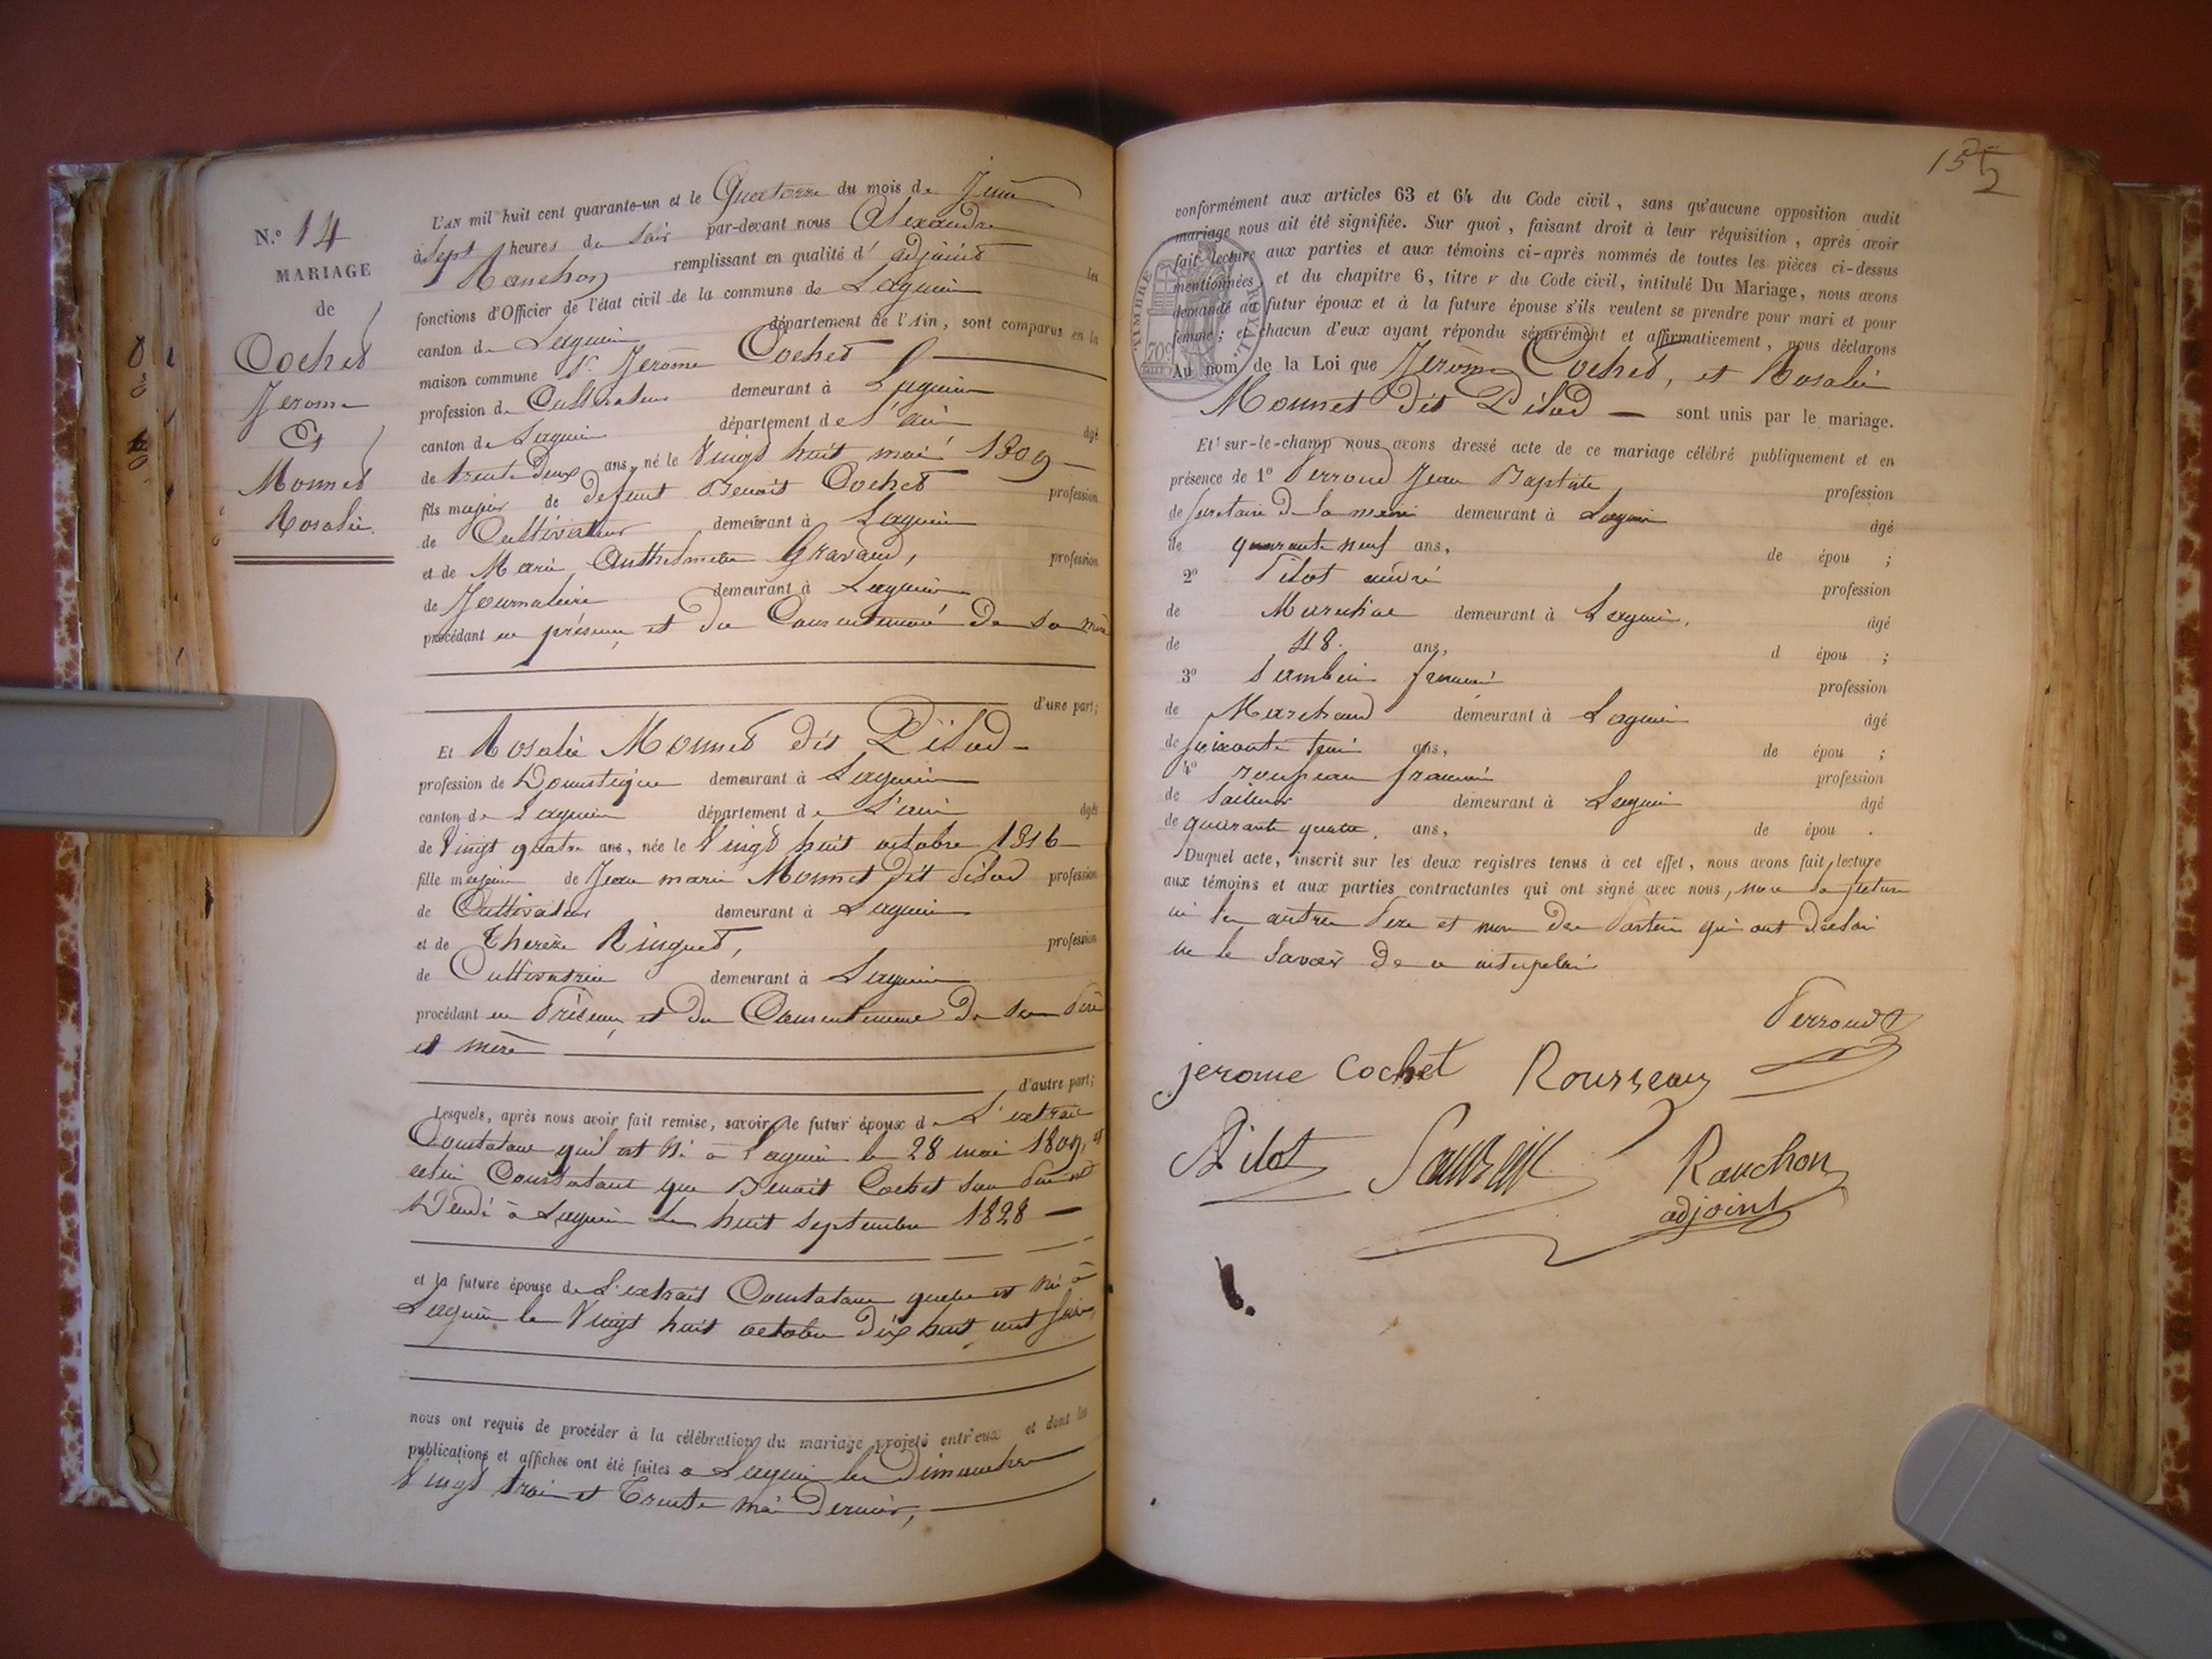 N.º 14
MARIAGE
de
Cochet
Jerome
Et
Monnet
Rosalie.
L'AN mil huit cent quarante-un et le Quatorze du mois de Juin
à Sept heures du soir par-devant nous Alexandre
Rauchon remplissant en qualité d' adjoint les
fonctions d'Officier de l'état civil de la commune de Lagnieu
canton de Lagnieu département de l'Ain, sont comparus en la
maison commune Sr. Jerôme Cochet
profession de Cultivateur demeurant à Lagnieu
canton de Lagnieu département de l'ain âgé
de trente deux ans, né le Vingt huit mai 1809
fils majeur de defunt Benoit Cochet profession
de Cultivateur demeurant à Lagnieu
et de Marie Anthelmette Gravaud, profession
de Journaliere demeurant à Lagnieu
procédant en présence et du Consentement De sa mère
d'une part;
Et Rosalie Monnet dit Pilod
profession de Domestique demeurant à Lagnieu
canton de Lagnieu département de L'ain âgée
de Vingt quatre ans, née le Vingt huit octobre 1816
fille majeure de Jean marie Monnet dit Pilod profession
de Cultivateur demeurant à Lagnieu
et de Thereze Ringuet, profession
de Cultivatrice demeurant à Lagnieu
procédant en Présence et du Consentement De ses Père
et mère
d'autre part;
Lesquels, après nous avoir fait remise, savoir, le futur époux de L'extrait
Constatant qu'il est né à Lagnieu le 28 mai 1809, et
celui Constatant que Benoit Cochet son Père est
Décédé à Lagnieu le huit septembre 1828
et la future épouse de L'extrait Constatant quelle est née à
Lagnieu le Vingt huit octobre dix huit cent seize,
nous ont requis de procéder à la célébration du mariage projeté entr'eux et dont les
publications et affiches ont été faites à Lagnieu les Dimanches
Vingt trois et Trente mai Dernier,
155
2
conformément aux articles 63 et 64 du Code civil, sans qu'aucune opposition audit
mariage nous ait été signifiée. Sur quoi, faisant droit à leur réquisition, après avoir
fait lecture aux parties et aux témoins ci-après nommés de toutes les pièces ci-dessus
mentionnées, et du chapitre 6, titre v du Code civil, intitulé Du Mariage, nous avons
demandé au futur époux et à la future épouse s'ils veulent se prendre pour mari et pour
femme; et chacun d'eux ayant répondu séparément et affirmativement, nous déclarons
Au nom de la Loi que Jerôme Cochet, et Rosalie
Monnet dit Pilod sont unis par le mariage.
TIMBRE ROYAL
70c
Et sur-le-champ nous avons dressé acte de ce mariage célébré publiquement et en
présence de 1º Perroud Jean Baptiste, profession
de secretaire de la mairie demeurant à Lagnieu âgé
de quarante neuf ans, de épou ;
2º Pilot andré profession
de Marechal demeurant à Lagnieu, âgé
de 48. ans, d épou ;
3º Sambein profession
de Marchand demeurant à Lagnieu âgé
de soixante ans, de épou ;
4º francois profession
de tailleur demeurant à Lagnieu âgé
de quarante quatre. ans, de épou .
Duquel acte, inscrit sur les deux registres tenus à cet effet, nous avons fait lecture
aux témoins et aux parties contractantes qui ont signé avec nous, non la future
ni les autres Pere et mere Des Parties qui ont Déclaré
ne le Savoir De ce interpelés
Perroud
jerome Cochet Rousseau
Pilot Sambein Rauchon
adjoint